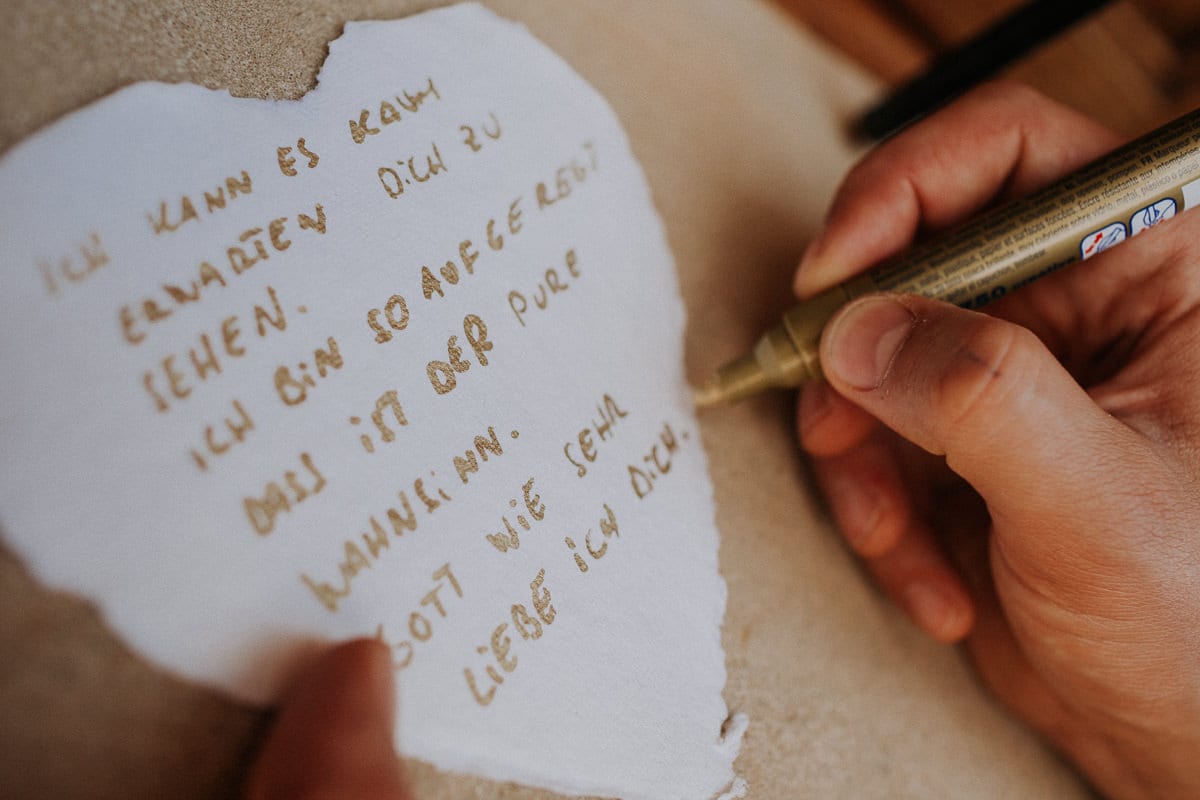 ICH KANN ES KAUM
ERWARTEN DICH ZU
SEHEN.
ICH BIN SO AUFGEREGT
DASS IST DER PURE
WAHNSINN.
GOTT WIE SEHR
LIEBE ICH DICH.